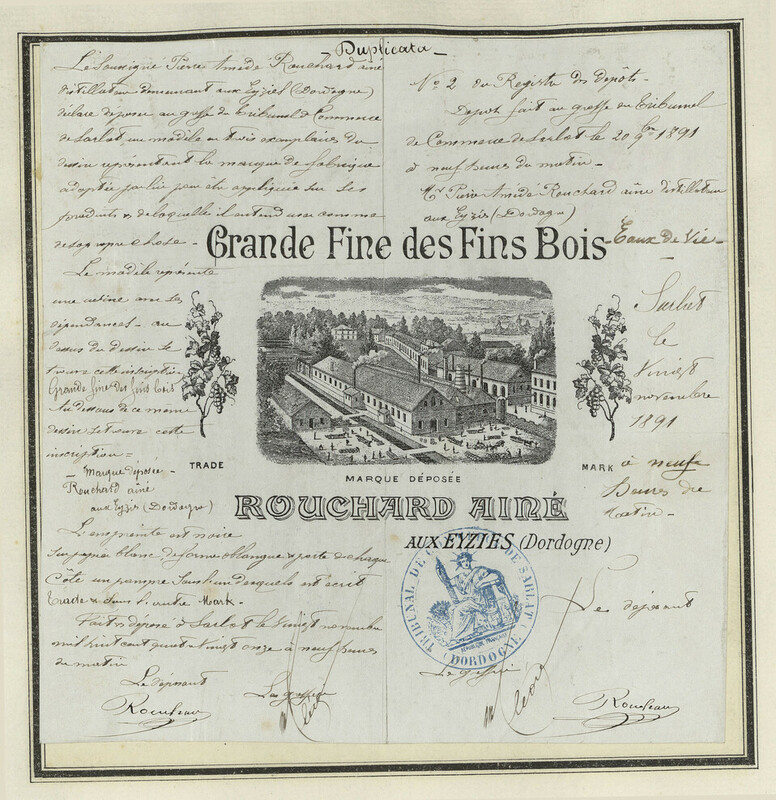 Duplicata
Le Soussigné Pierre Amédé Rouchard ainé
distillateur demeurant aux Eyzies (Dordogne)
déclare déposer au greffe du Tribunal de Commerce
de Sarlat, un modèle en trois exemplaires du
dessin représentant la marque de fabrique
adoptée par lui pour être appliquée sur ses
produits & de laquelle il entend user comme
de sa propre chose.
Le modèle représente
une usine avec ses
dépendances - au
dessus du dessin se
trouve cette inscription
Grande fine des fins bois
Au dessous de ce même
dessin se trouve cette
inscription =
Marque déposée -
Rouchard ainé
aux Eyzies (Dordogne)
L'empreinte est noire
sur papier blanc de forme oblongue & porte de chaque
côté un pampre sous l'un desquels est écrit
Trade & dans l'autre Mark -
Fait & déposé à Sarlat le vingt novembre
mil huit cent quatre vingt onze à neuf heures
du matin
Le déposant
Le greffier
N° 2 du Registre des dépôts -
Dépôt fait au greffe du Tribunal
de Commerce de Sarlat le 20 9bre 1891
à neuf heures du matin -
Mr Pierre Amédé Rouchard ainé distillateur
aux Eyzies (Dordogne)
Grande Fine des Fins Bois
- Eaux de Vie -
Sarlat
le
Vingt
novembre
1891
à neuf
heures du
matin -
TRADE
MARK
MARQUE DÉPOSÉE
ROUCHARD AINÉ
AUX EYZIES (Dordogne)
TRIBUNAL DE COMMERCE DE SARLAT
RÉPUBLIQUE FRANÇAISE
(DORDOGNE)
Le déposant
Le greffier